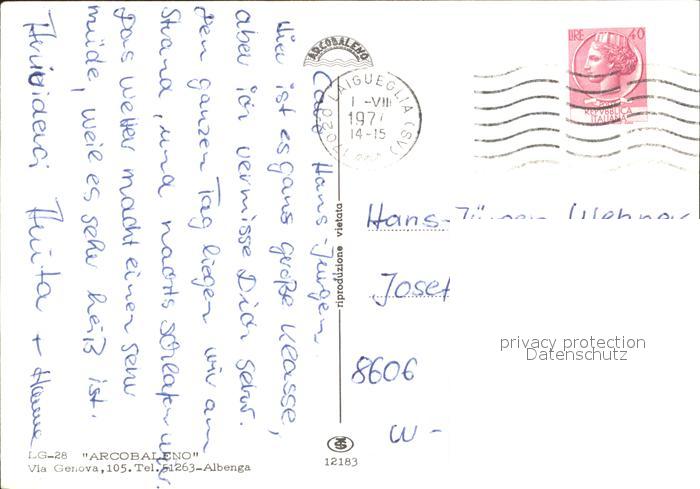 Hallo Hans-Jürgen.
Hier ist es ganz große Klasse,
aber ich vermisse Dich sehr.
Den ganzen Tag liegen wir am
Strand, und nachts schlafen wir.
Das Wetter macht einen sehr
müde, weil es sehr heiß ist.
Anita +
ARCOBALENO
17020 LAIGUEGLIA (SV)
1-VIII
197
14-15
LIRE 40
REPVBBLICA
ITALIANA
riproduzione vietata
Hans-Jürgen
Josef
8606
W-
privacy protection
Datenschutz
LG-28 "ARCOBALENO"
Via Genova,105.Tel.51263-Albenga
12183